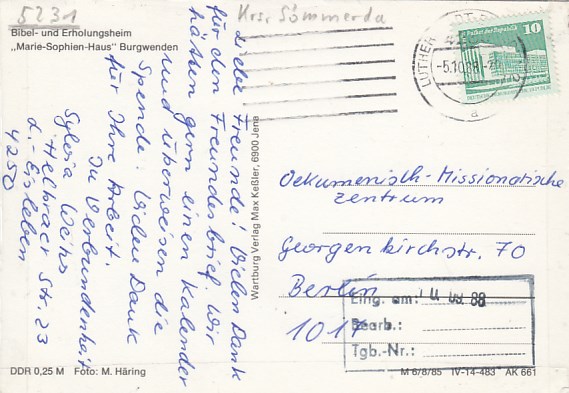 5231
Krs. Sömmerda
Bibel- und Erholungsheim
„Marie-Sophien-Haus" Burgwenden
Liebe Freunde! Vielen Dank
für den Freundesbrief. Wir
hätten gern einen Kalender
und überweisen die
Spende. Vielen Dank
für Ihre Arbeit.
In Verbundenheit
Sylvia Weihs
Helbraer Str. 23
L.-Eisleben
4250
Wartburg Verlag Max Keßler, 6900 Jena
LUTHER
-5.10.88-
a
10
Oekumenisch-Missionarische
Zentrum
Georgenkirchstr. 70
Berlin
1017
Eing. am:
88
Bearb.:
Tgb.-Nr.:
DDR 0,25 M Foto: M. Häring
M 6/8/85 IV-14-483 AK 661